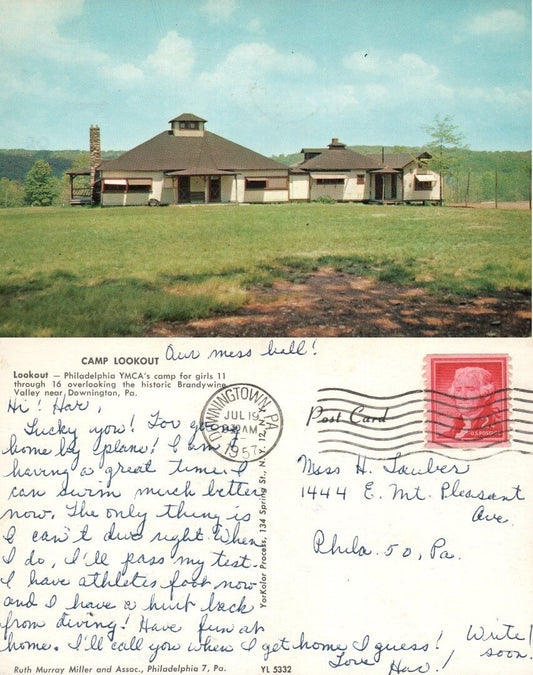 CAMP LOOKOUT Our mess hall!
Lookout — Philadelphia YMCA's camp for girls 11
through 16 overlooking the historic Brandywine
Valley near Downington, Pa.
Hi! Har,
Lucky you! For going
home by plane! I am
having a great time. I
can swim much better
now. The only thing is
I can't dive right. When
I do, I'll pass my test.
I have athletes foot now
and I have a hurt back
from diving! Have fun at
home. I'll call you when I get home I guess! Write
soon.
Love
Har!
Ruth Murray Miller and Assoc., Philadelphia 7, Pa. YL 5332
YorKolor Process, 134 Spring St., N.Y. 12, N.Y.
DOWNINGTOWN, PA.
JUL 19
AM
1957
Post Card
2¢
U.S. POSTAGE
Miss H. Tauber
1444 E. Mt. Pleasant
Ave.
Phila. 50, Pa.